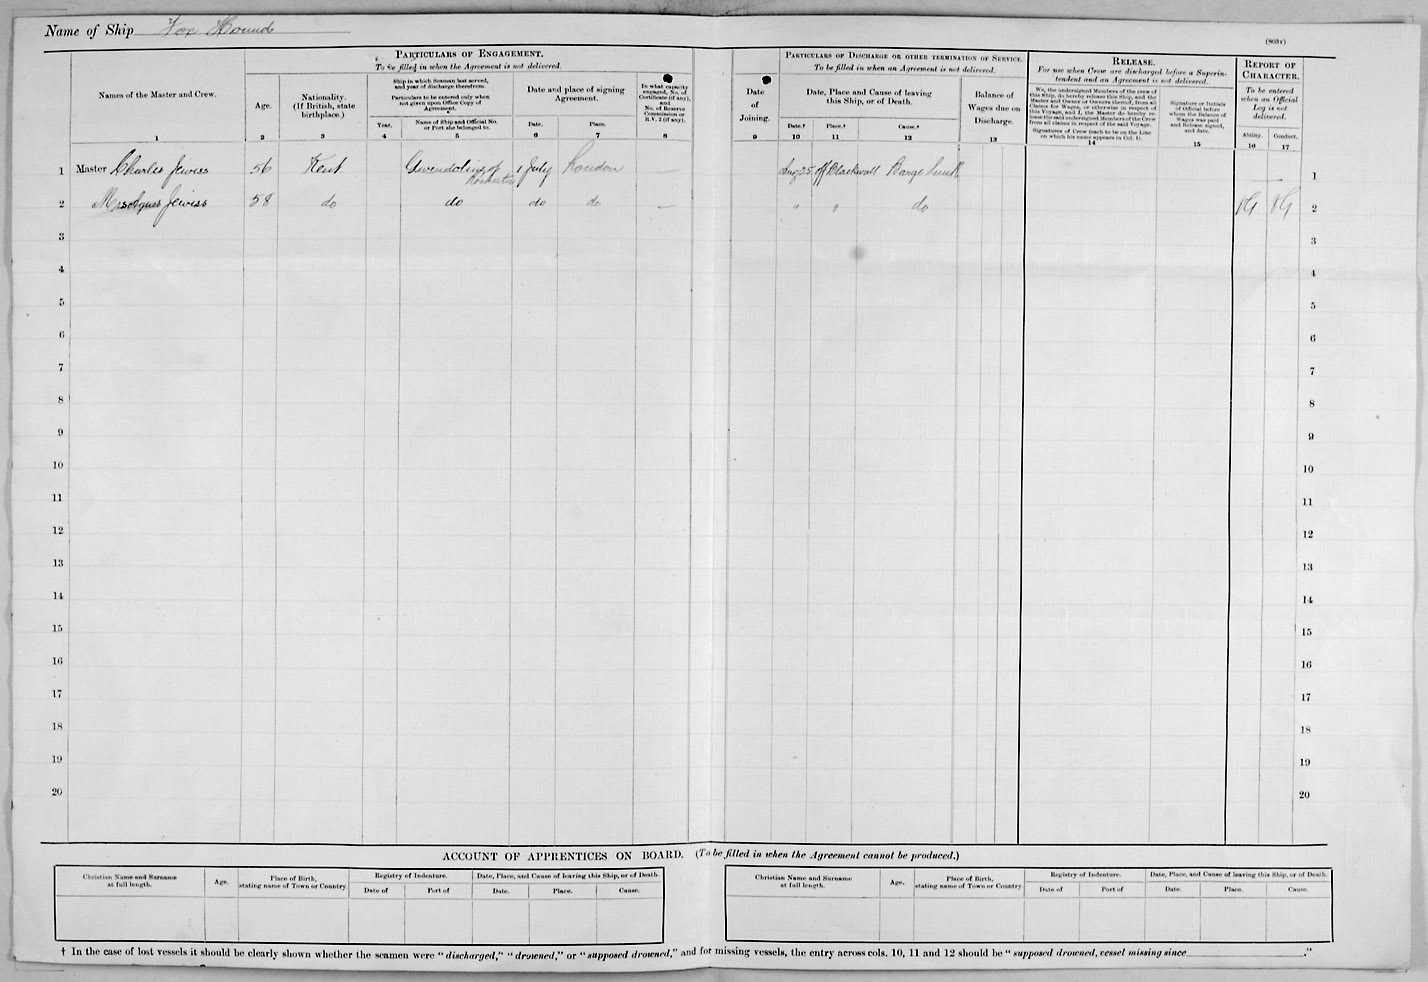 Name of Ship Fox Hound
(803v)
PARTICULARS OF ENGAGEMENT.
To be filled in when the Agreement is not delivered.
Names of the Master and Crew.
Age.
Nationality.
(If British, state
birthplace.)
Ship in which Seaman last served,
and year of discharge therefrom.
Particulars to be entered only when
not given upon Office Copy of
Agreement.
Year.
Name of Ship and Official No.
or Port she belonged to.
Date and place of signing
Agreement.
Date.
Place.
In what capacity
engaged, No. of
Certificate (if any),
and
No. of Reserve
Commission or
R.V. 2 (if any).
1 2 3 4 5 6 7 8
Date
of
Joining.
PARTICULARS OF DISCHARGE OR OTHER TERMINATION OF SERVICE.
To be filled in when an Agreement is not delivered.
Date, Place and Cause of leaving
this Ship, or of Death.
Date.†
Place.†
Cause.†
Balance of
Wages due on
Discharge.
RELEASE.
For use when Crew are discharged before a Superin-
tendent and an Agreement is not delivered.
We, the undersigned Members of the crew of
this Ship, do hereby release this Ship, and the
Master and Owner or Owners thereof, from all
Claims for Wages, or otherwise in respect of
this Voyage, and I, the Master do hereby re-
lease the said undersigned Members of the Crew
from all claims in respect of the said Voyage.
Signatures of Crew (each to be on the Line
on which his name appears in Col. 1).
Signature or Initials
of Official before
whom the Balance of
Wages was paid
and Release signed,
and date.
REPORT OF
CHARACTER.
To be entered
when an Official
Log is not
delivered.
Ability.
Conduct.
9 10 11 12 13 14 15 16 17
1 Master Charles Jewiss 56 Kent Gwendoline of Rochester 1 July London — Aug 25 off Blackwall Barge Sunk — 1
2 Mrs Agnes Jewiss 58 do do do do — " " do VG VG 2
3 3
4 4
5 5
6 6
7 7
8 8
9 9
10 10
11 11
12 12
13 13
14 14
15 15
16 16
17 17
18 18
19 19
20 20
ACCOUNT OF APPRENTICES ON BOARD. (To be filled in when the Agreement cannot be produced.)
Christian Name and Surname
at full length.
Age.
Place of Birth,
stating name of Town or Country.
Registry of Indenture.
Date of
Port of
Date, Place, and Cause of leaving this Ship, or of Death.
Date.
Place.
Cause.
Christian Name and Surname
at full length.
Age.
Place of Birth,
stating name of Town or Country.
Registry of Indenture.
Date of
Port of
Date, Place, and Cause of leaving this Ship, or of Death.
Date.
Place.
Cause.
† In the case of lost vessels it should be clearly shown whether the seamen were "discharged," "drowned," or "supposed drowned," and for missing vessels, the entry across cols. 10, 11 and 12 should be "supposed drowned, vessel missing since ."